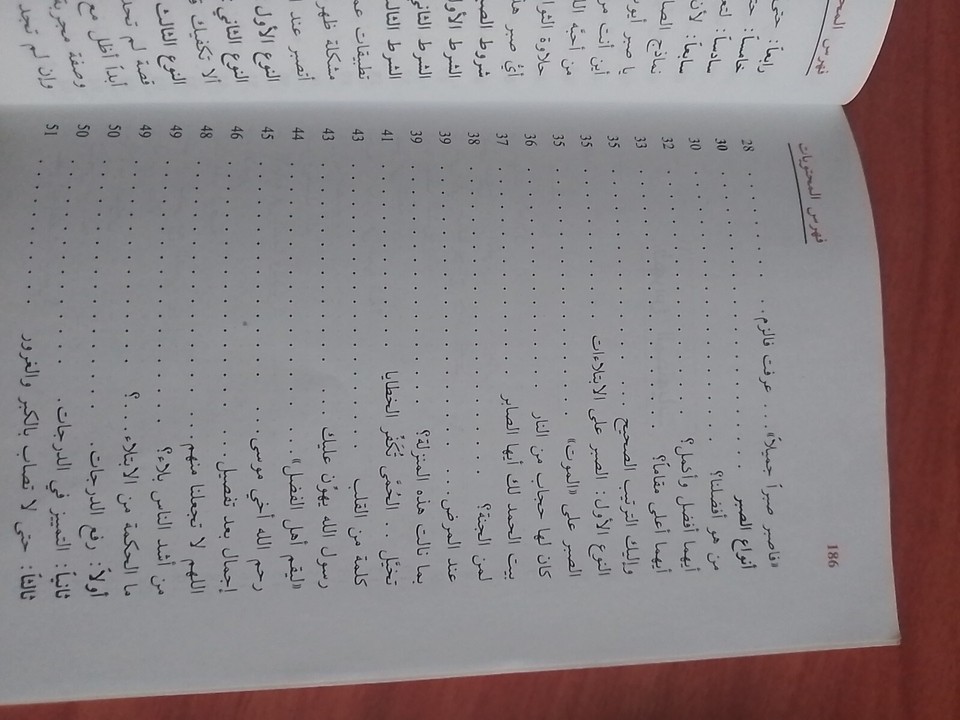 186
فهرس المحتويات
«فاصبر صبراً جميلاً» ... عرفت فالزم . . . . . 28
أنواع الصبر . . . . . 30
من هو أفضلنا؟ . . . . . 30
أيهما أفضل وأكمل؟ . . . . . 32
أيهما أعلى مقاماً؟ . . . . . 33
وإليك الترتيب الصحيح . . . . . 35
النوع الأول: الصبر على الابتلاءات . . . . . 35
الصبر على «الموت» . . . . . 35
كان لها حجاب من النار . . . . . 36
بيت الحمد لك أيها الصابر . . . . . 37
لمن الجنة؟ . . . . . 38
عند المرض . . . . . 39
بما نالت هذه المنزلة؟ . . . . . 39
تخيّل . . الحُمّى تُكَفّر الخطايا . . . . . 41
كلمة من القلب . . . . . 43
رسول الله يهوّن عليك . . . . . 43
«ليقم أهل الفضل» . . . . . 44
رحم الله أخي موسى . . . . . 45
إجمال بعد تفصيل . . . . . 46
اللهم لا تجعلنا منهم . . . . . 48
من أشد الناس بلاء؟ . . . . . 49
ما الحكمة من الابتلاء...؟ . . . . . 49
أولاً: رفع الدرجات . . . . . 50
ثانياً: التميز في الدرجات . . . . . 50
ثالثاً: حتى لا تصاب بالكبر والغرور . . . . . 51
فهرس
رابعاً: حتى
خامساً:
سادساً:
سابعاً: لأن
نماذج
يا صبر أيوب
أين أنت من
من أحبّه
حلاوة
أيّ صبر
شروط
الشرط الأول
الشرط الثاني
الشرط
تطبيقات
مشكلة
أتصبر عند
النوع الأول
النوع الثاني
ألا تكفيك
النوع
قصة لم
أبداً أظل مع
وصفة
وإن لم تجد